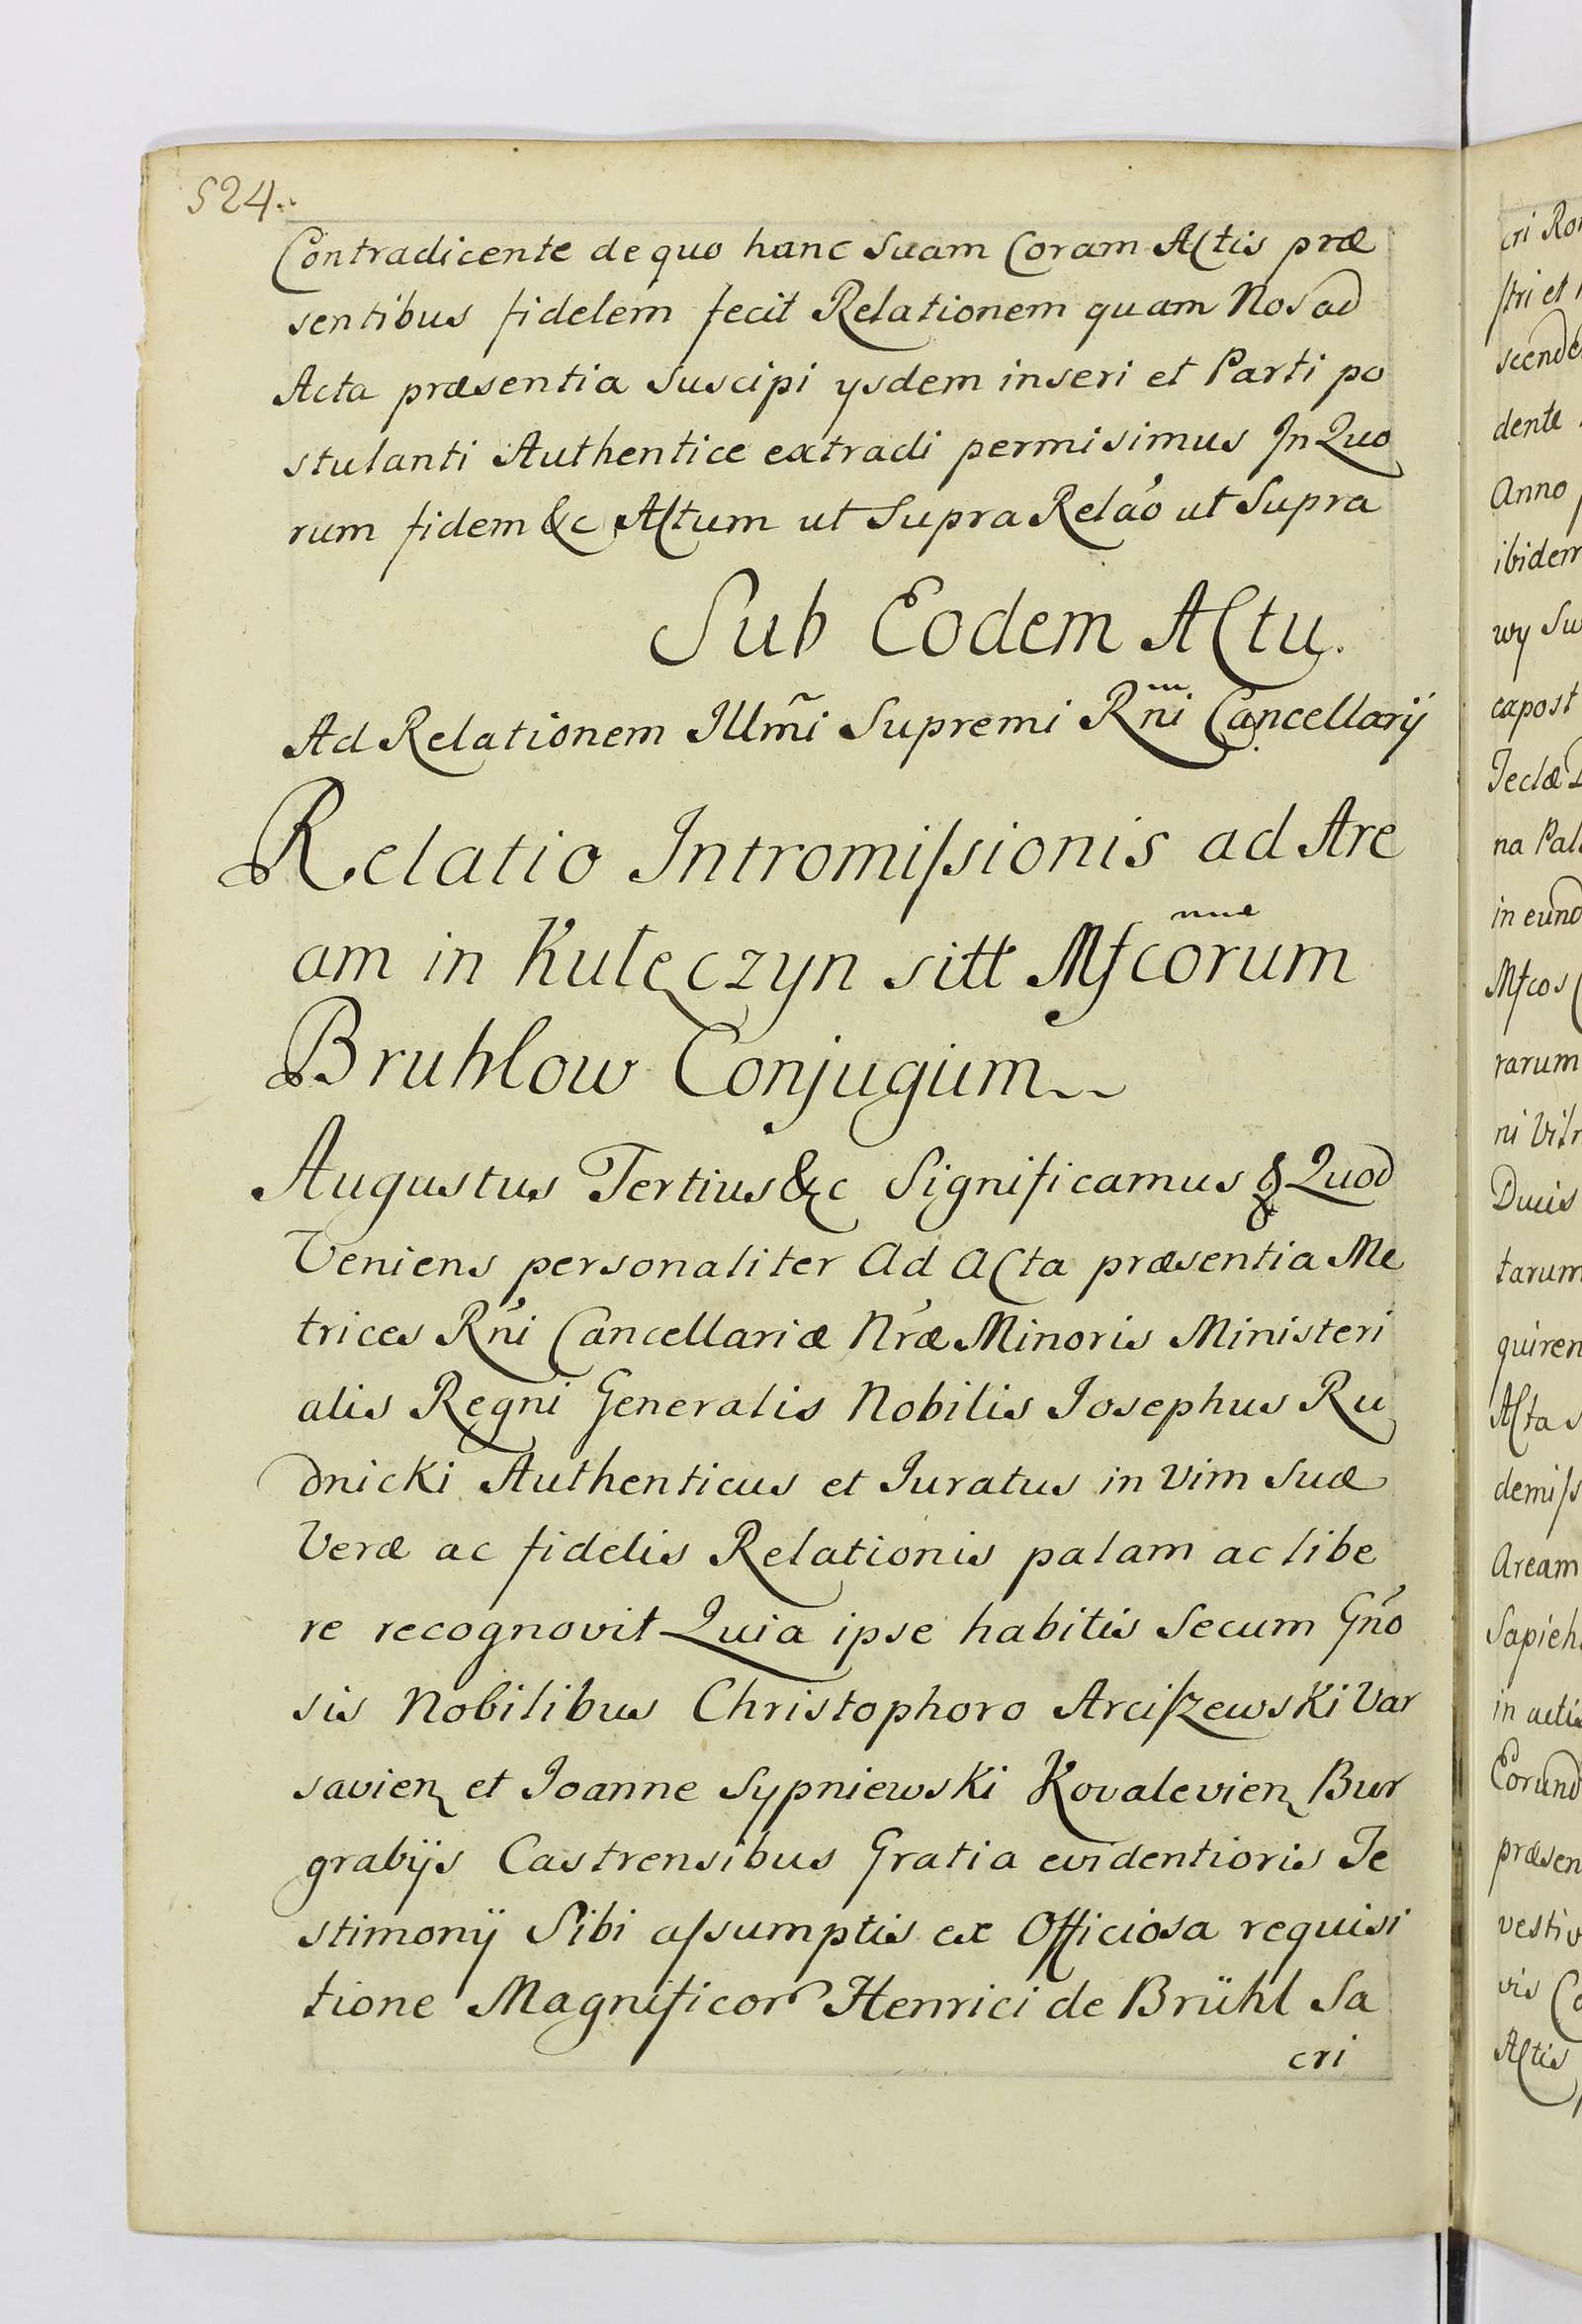 524.
Contradicente de quo hanc Suam Coram Actis præ
sentibus fidelem fecit Relationem quam Nos ad
Acta præsentia Suscipi ysdem inseri et Parti po
stulanti Authentice extradi permisimus In Quo
rum fidem &c Actum ut Supra Reláo ut Supra
Sub Eodem Actu.
Ad Relationem Illm̃i Supremi Rñi Cancellarij
Relatio Intromissionis ad Are
am in Kulęczyn sitt Mfcorum
Bruhlow Conjugum
Augustus Tertius &c Significamus & Quod
Veniens personaliter Ad Acta præsentia Me
trices Rńi Cancellariæ Nŕæ Minoris Ministeri
alis Regni Generalis Nobilis Iosephus Ru
dnicki Authenticus et Iuratus in vim Suæ
Veræ ac fidelis Relationis palam ac libe
re recognovit Quia ipse habitis Secum Gńo
sis Nobilibus Christophoro Arciszewski Var
savien et Ioanne Sypniewski Kovalevien Bur
grabijs Castrensibus Gratia evidentioris Te
stimonij Sibi assumptis ex Officiosa requisi
tione Magnificor Henrici de Brühl Sa
cri
cri Ro
stri et
scende
dente
Anno
ibidem
wy Su
capost
Teclæ
na Pal
in eund
Mfcos
rarum
Ducis
tarum
quiren
Acta s
demiss
Aream
Sapieh
in acti
Eorund
præsen
vestiv
vis Co
Actis